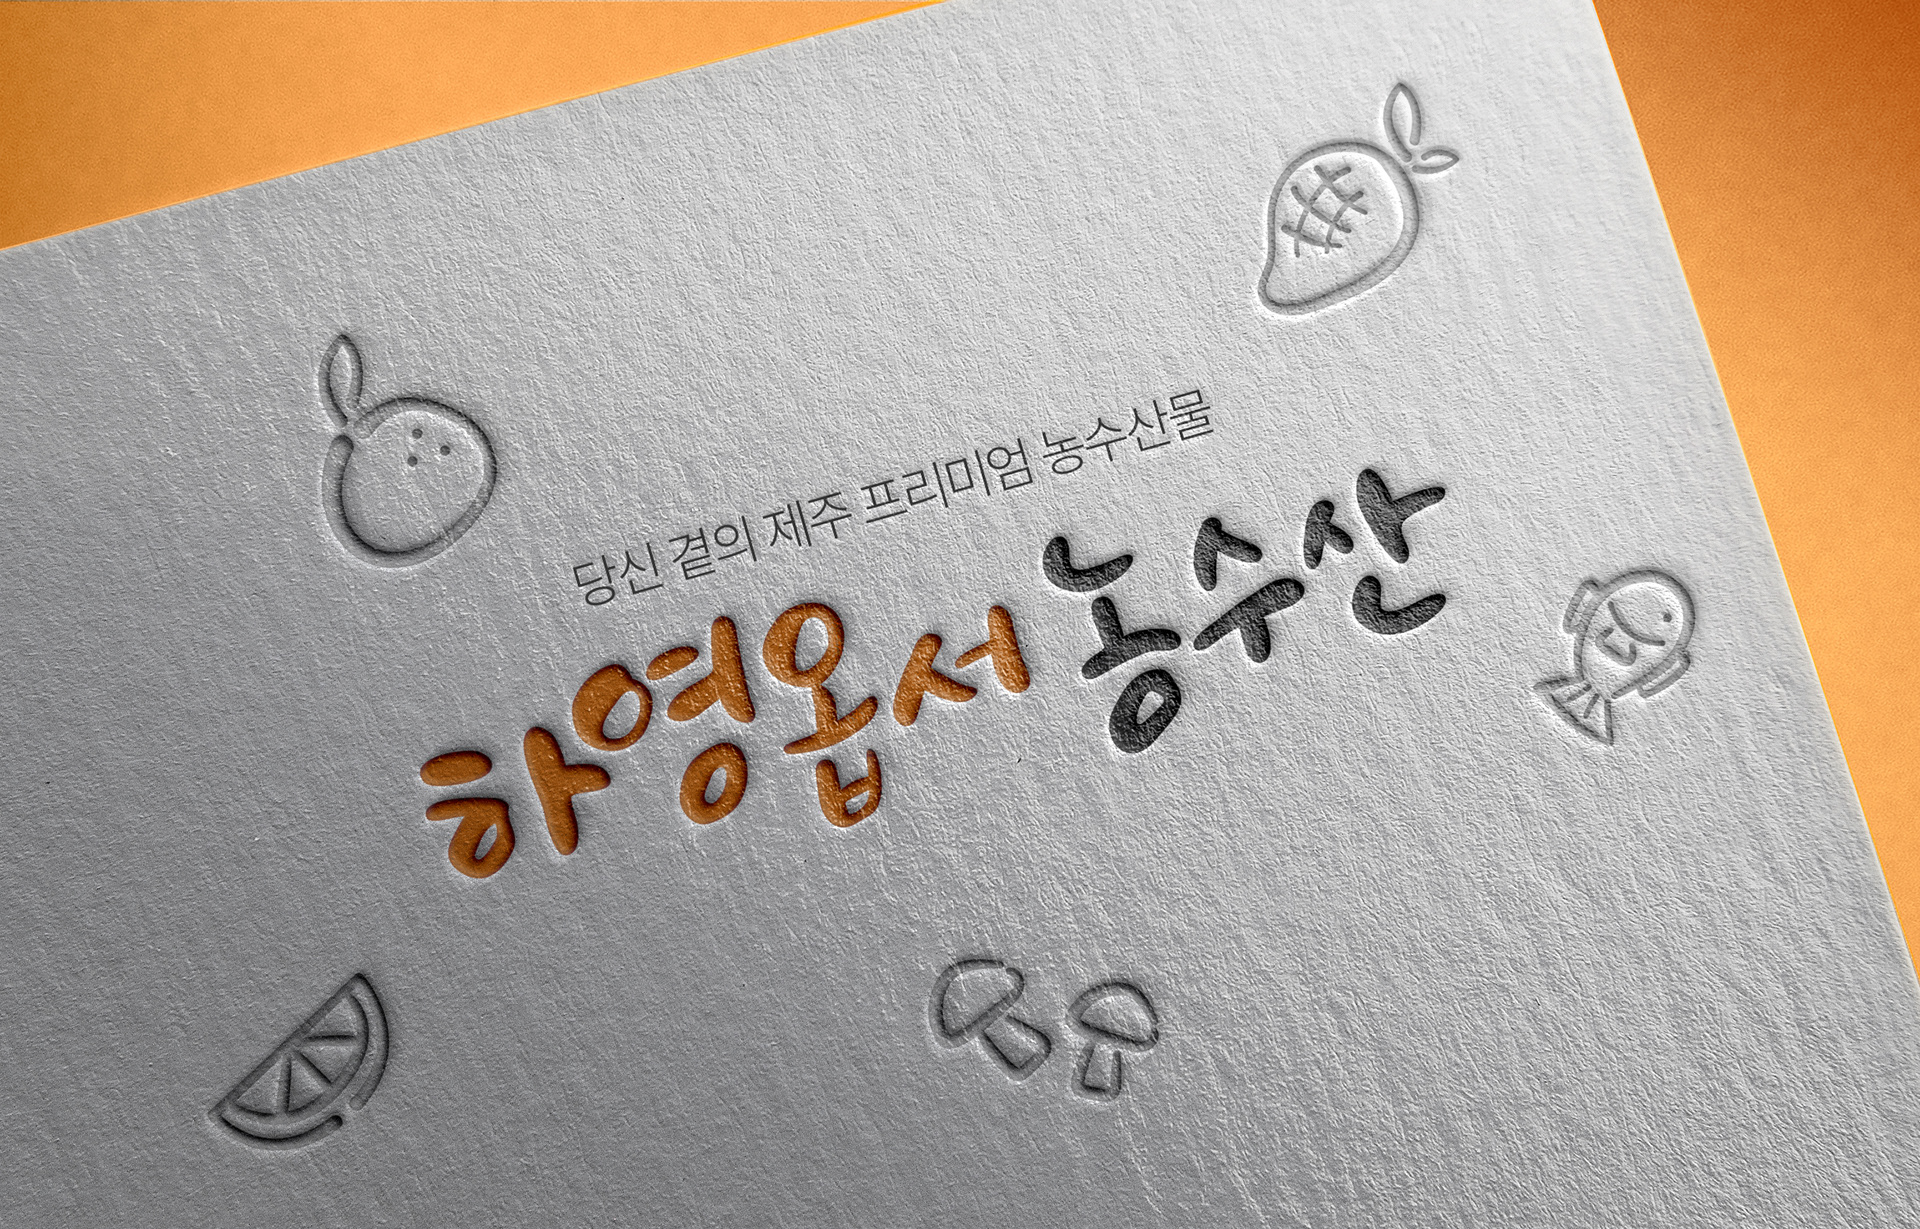 당신 곁의 제주 프리미엄 농수산물
하영옵서 농수산